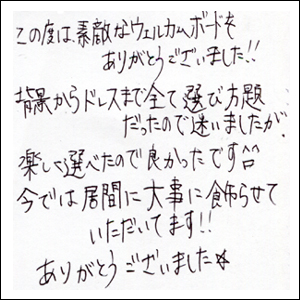 この度は、素敵なウェルカムボードを
ありがとうございました!!
背景からドレスまで全て選び方題
だったので迷いましたが、
楽しく選べたので良かったです^^
今では居間に大事に飾らせて
いただいてます!!
ありがとうございました☆